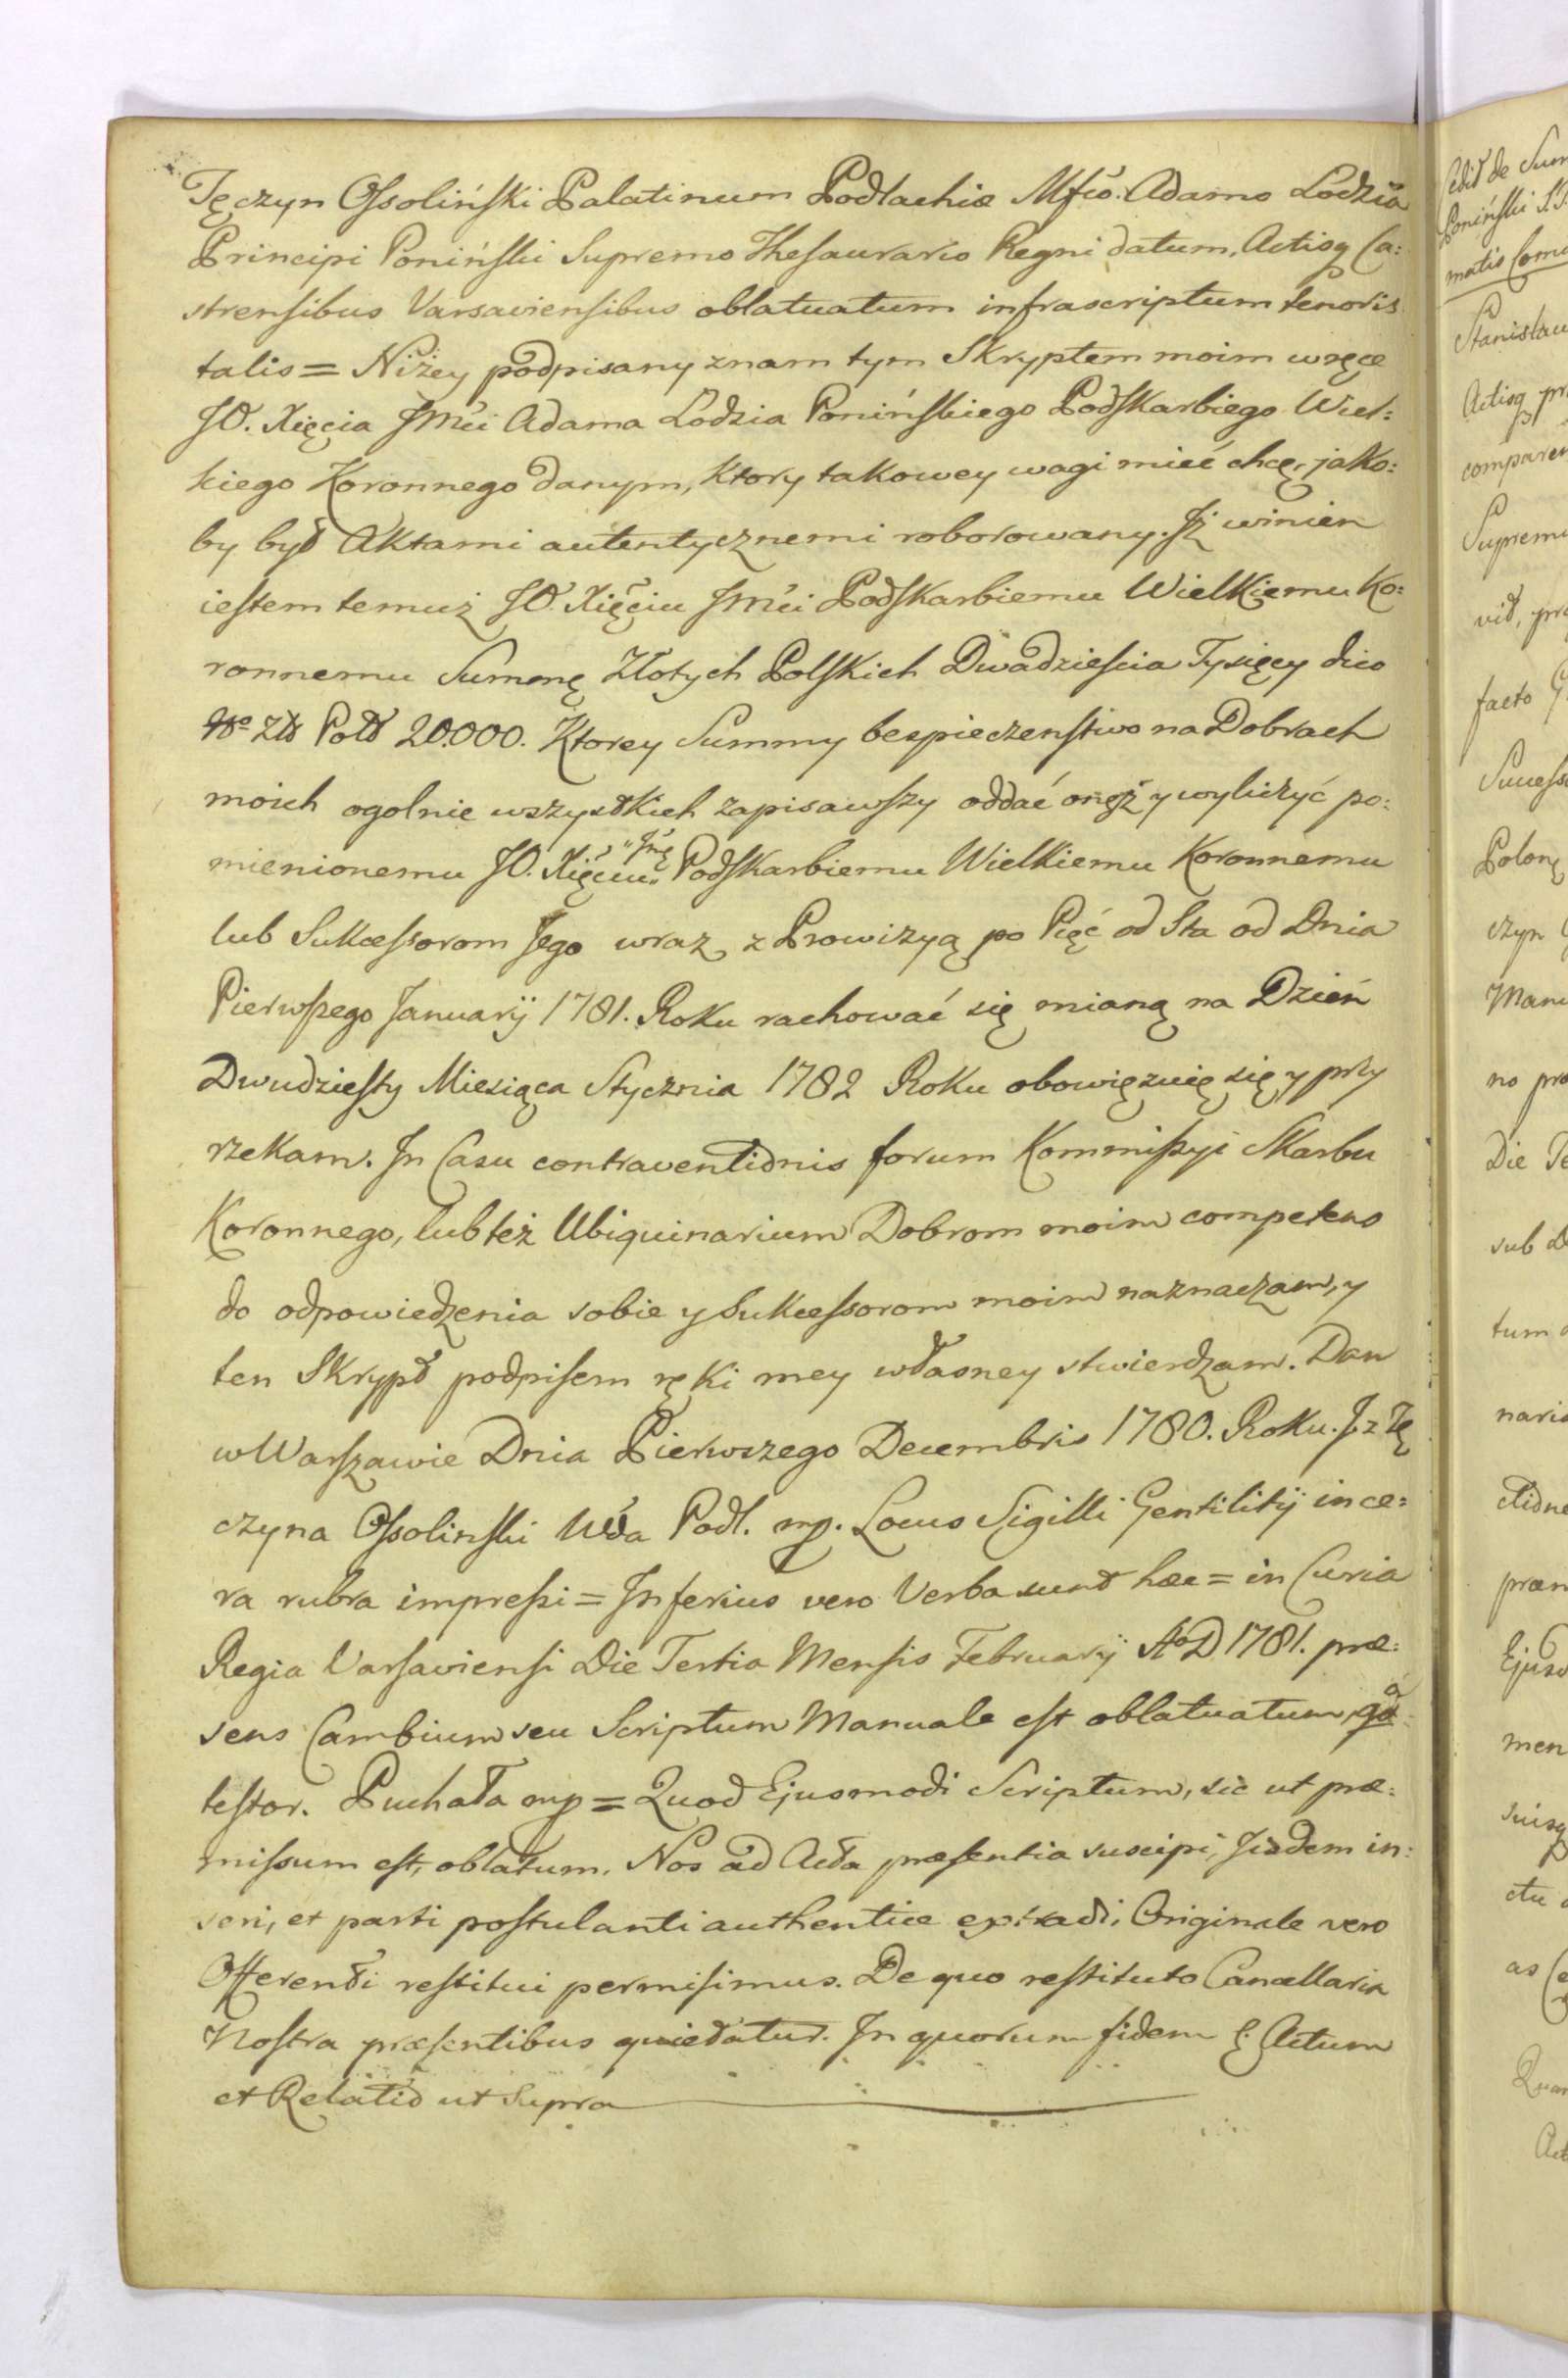 Tęczyn Ossoliński Palatinum Podlachiæ Mfco. Adamo Lodzia
Principi Poniński Supremo Thesaurario Regni datum, Actisq Ca:
strensibus Varsaviensibus oblatuatum infrascriptum tenoris
talis = Niżey podpisany znam tym Skryptem moim w ręce
JO. Xięcia Jmci Adama Lodzia Ponińskiego Podskarbiego Wiel:
kiego Koronnego danym, ktory takowey wagi mieć chcę, jako:
by był Aktami autentycznemi roborowany. Jż winien
iestem temuż JO. Xięciu Jmci Podskarbiemu Wielkiemu Ko:
ronnemu Summę Złotych Polskich Dwadziescia Tysięcy dico
Nro Złł Poll 20.000. Ktorey Summy bespieczenstwo na Dobrach
moich ogolnie wszystkich zapisawszy oddać onęż y wyliczyć po:
mienionemu JO. Xięciu Jmę Podskarbiemu Wielkiemu Koronnemu
lub Sukcessorom Jego wraz z Prowizyą po Pięć od Sta od Dnia
Pierwszego Januarij 1781. Roku rachować się mianą na Dzień
Dwudziesty Miesiąca Stycznia 1782 Roku obowięzuię się y przy
rzekam. Jn Casu contraventionis forum Kommissyi Skarbu
Koronnego, lub też Ubiquinarium Dobrom moim competens
do odpowiedzenia sobie y Sukcessorom moim naznaczam, y
ten Skrypt podpisem ręki mey własney stwierdzam. Dan
w Warszawie Dnia Pierwszego Decembris 1780. Roku. J. z Tę
czyna Ossolinski Wda Podl. mp. Locus Sigilli Gentilitij in ce:
ra rubra impressi = Jnferius vero Verba sunt hæc = in Curia
Regia Varsaviensi Die Tertia Mensis February Ao D 1781. præ:
sens Cambium seu Scriptum Manuale est oblatuatum, qd
testor. Puchała mp = Quod Ejusmodi Scriptum, sic ut præ:
missum est, oblatum. Nos ad Acta præsentia suscipi, Jisdem in:
seri, et parti postulanti authentice extradi, Originale vero
Offerenti restitui permisimus. De quo restituto Cancellaria
Nostra præsentibus quietatur. Jn quorum fidem &. Actum
et Relatio ut Supra
Poniński
Stanislau
Actisq
Supremi
facto
Polon
czyn
no
Die
sub
tum
men
as